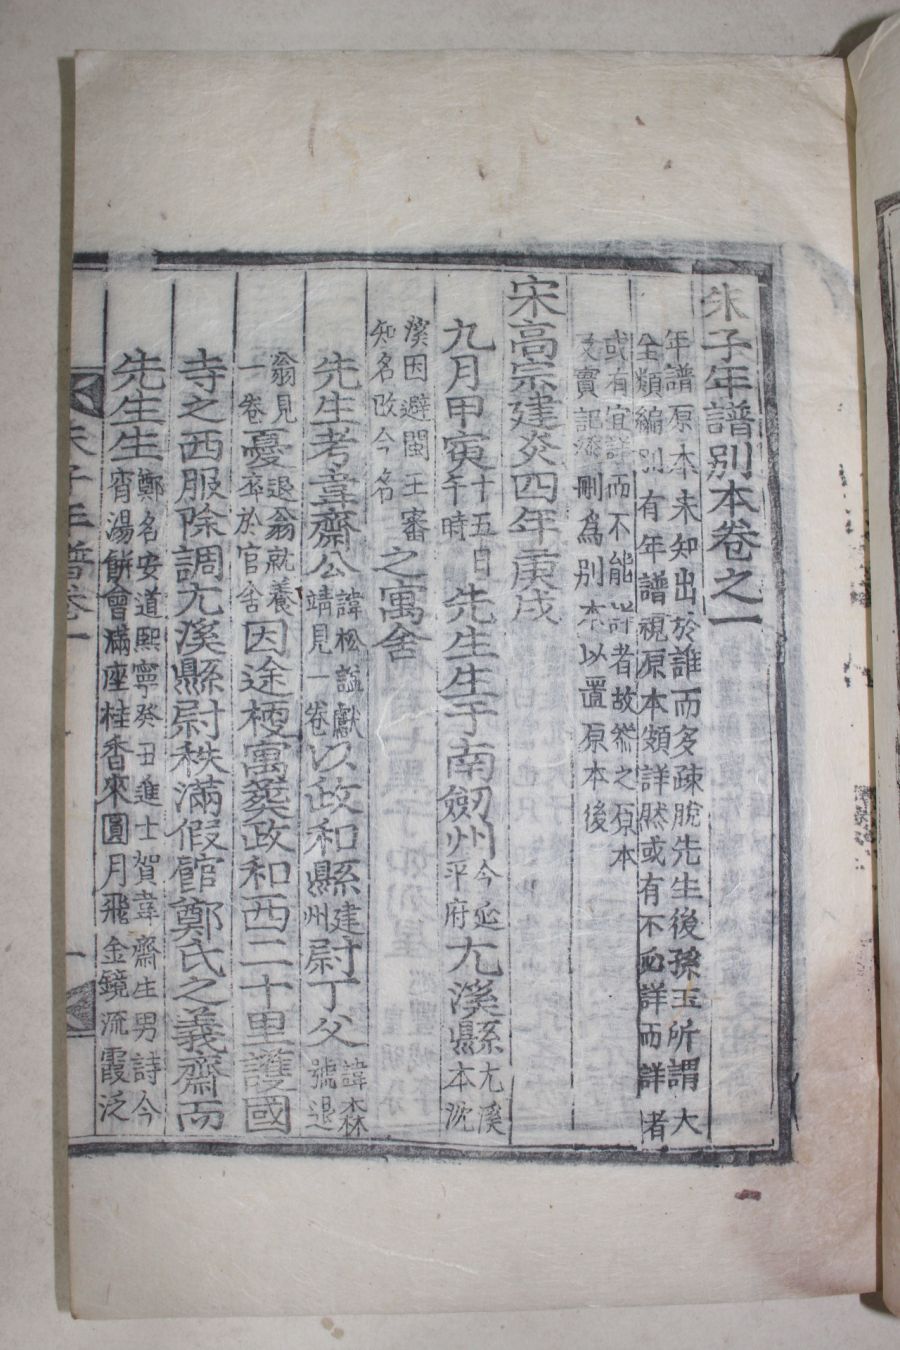 朱子年譜別本卷之一
年譜原本未知出於誰而多疎脫先生後孫玉所謂大
全類編別有年譜視原本頗詳然或有不必詳而詳者
或有宜詳而不能詳者故然之原本
及實記添刪爲別本以置原本後
宋高宗建炎四年庚戌
九月甲寅十五日午時先生生于南劒州今延平府尤溪縣尤溪本沈
溪因避閩王審知名改今名之寓舍
先生考韋齋公諱松謚獻靖見一卷以政和縣建州尉丁父諱森號退
翁見一卷憂退翁就養卒於官舍因途梗寓葬政和西二十里護國
寺之西服除調尤溪縣尉秩滿假館鄭氏之義齋而
先生生鄭名安道熙寧癸丑進士賀韋齋生男詩今宵湯餠會滿座桂香來圓月飛金鏡流霞泛
朱子年譜卷一
一